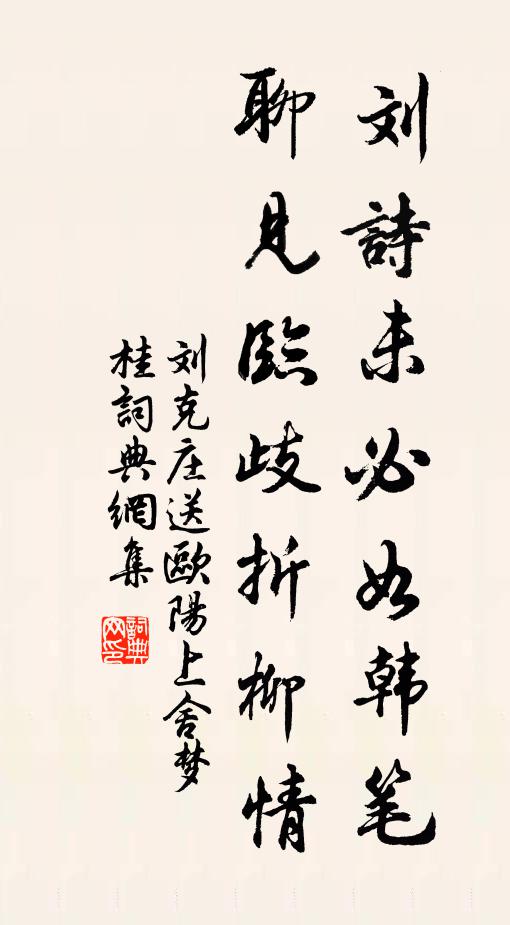 刘詩未必如韩笔
聊見臨歧折柳情
刘克庄送歐陽上舍梦
桂詞典網集
詞典网印